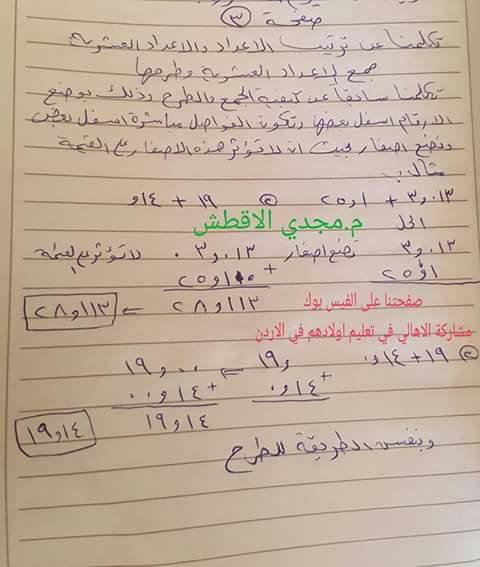 صفحة ③
تكلمنا عن ترتيب الاعداد والاعداد العشرية
جمع الاعداد العشرية وطرحها
تكلمنا سابقاً عن كيفية الجمع والطرح وذلك بوضع
الارقام اسفل بعضها وتكون الفواصل مباشرة اسفل بعض
ونضع اصفار بحيث ان لا تؤثر هذه الاصفار على القيمة
مثال
١٩ + ١٤و
الحل
م.مجدي الاقطش
تضع اصفار
لا تؤثر على القيمة
١١٣و٢٨ = ١١٣و٢٨
صفحتنا على الفيس بوك
مشاركة الاهالي في تعليم اولادهم في الاردن
② ١٩ + ١٤و٠
١٩و = ١٩و٠٠
١٤و٠ + ١٤و٠٠ +
١٤و١٩
١٤و١٩
وبنفس الطريقة للطرح